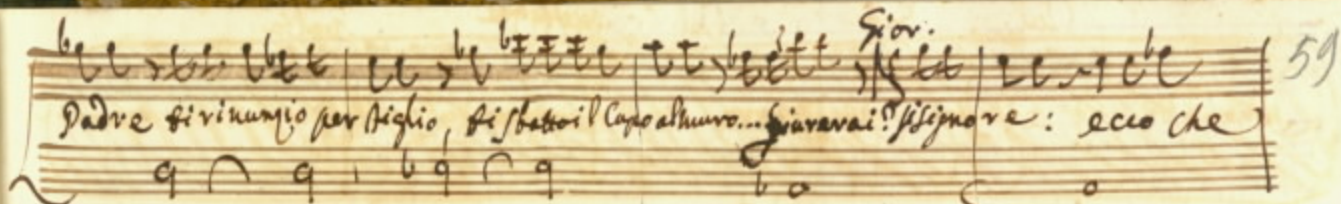 Gior. 59
Padre ti rinunzio per figlio, ti sbatto il Capo al muro... giurarai? sisignore: ecco che